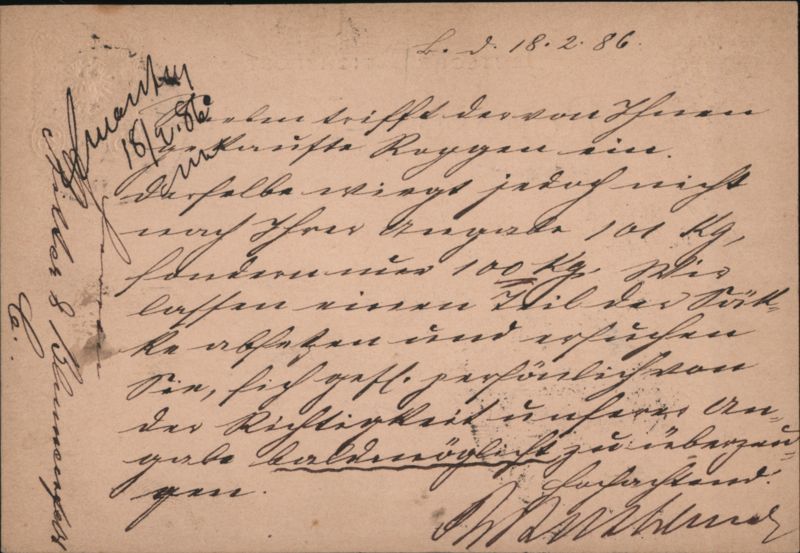 L. d. 18.2.86.
Soeben trifft der von Ihnen
gekaufte Roggen ein.
Derselbe wiegt jedoch nicht
nach Ihrer Angabe 101 Kg,
sondern nur 100 Kg. Wir
lassen einen Teil der Säk-
ke absetzen und ersuchen
Sie, sich gefl. persönlich von
der Richtigkeit unserer An-
gabe baldmöglichst zu überzeu-
gen.
Hochachtend.
18/2.86
Herren
&